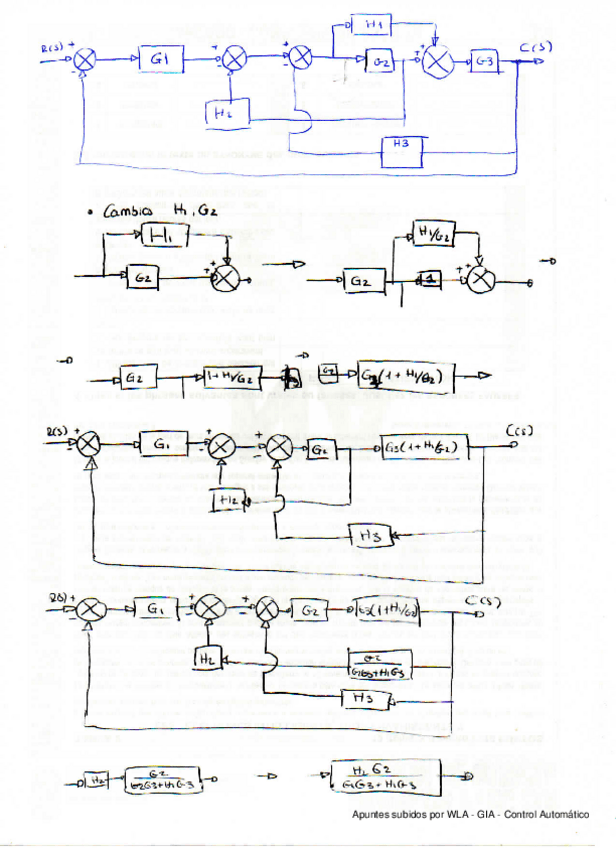 H1
R(S) + - G1 + - + - G2 + + G3 C(S)
H2
H3
• Cambios H1, G2
H1
G2 + +
H1/G2
G2 1 + +
G2 1 + H1/G2
(1 + H1/G2)
R(S) + - G1 + - + - G2 G3(1+H1/G2) C(S)
H2
H3
R(S) + - G1 + - + - G2 G3(1+H1/G2) C(S)
H2
G2
G2G3+H1G3
H3
H2 G2
G2G3+H1G3
H2 G2
G2G3+H1G3
Apuntes subidos por WLA - GIA - Control Automático